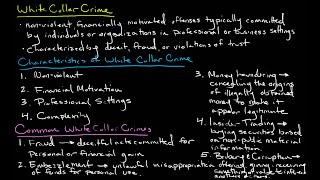 White Collar Crime
• non-violent financially motivated offenses typically committed
by individuals or organizations in professional or business settings
• characterised by deceit, fraud, or violations of trust
Characteristics of White Collar Crime
1. Non-violent
2. Financial Motivation
3. Professional Settings
4. Complexity
Common White Collar Crimes
1. Fraud → deceitful acts committed for
personal or financial gain
2. Embezzlement → unlawful misappropriation
of funds for personal use.
3. Money laundering →
concealing the origins
of illegally obtained
money to make it
appear legitimate
4. Insider Trading →
buying securities based
on non-public material
information.
5. Bribery & Corruption →
offering, giving, receiving
something of value to influence